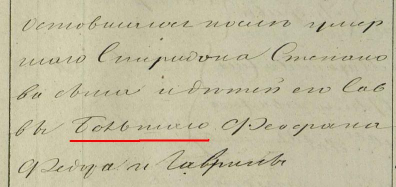 Оставшагося послѣ умер
шаго Спиридона Степано
ва сына и дѣтей его Сав
вы Большаго Феофана
Федора и Гаврилы